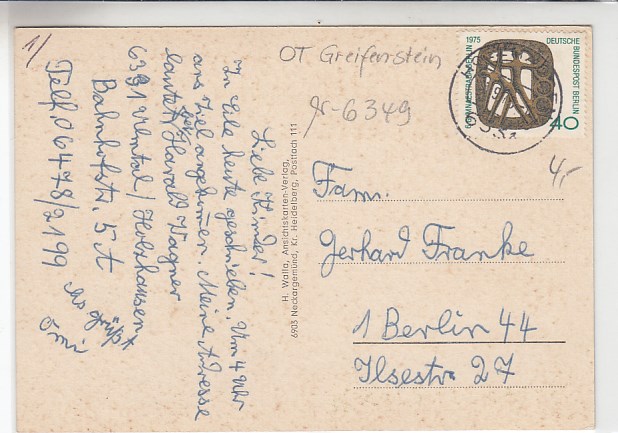 1/
Liebe Kinder!
In Eile heute geschrieben. Um 4 Uhr
ans Ziel angekommen. Meine Adresse
lautet Harald Wagner
6331 Ulmtal / Holzhausen
Bahnhofstr. 5 A
Telf. 06478/2199
es grüßt
Omi
H. Walla, Ansichtskarten-Verlag,
6903 Neckargemünd, Kr. Heidelberg, Postfach 111
OT Greifenstein
fr-6349
GYMNAESTRADA BERLIN 1975
DEUTSCHE BUNDESPOST BERLIN
40
4,-
Fam.
Gerhard Franke
1 Berlin 44
Ilsestr. 27